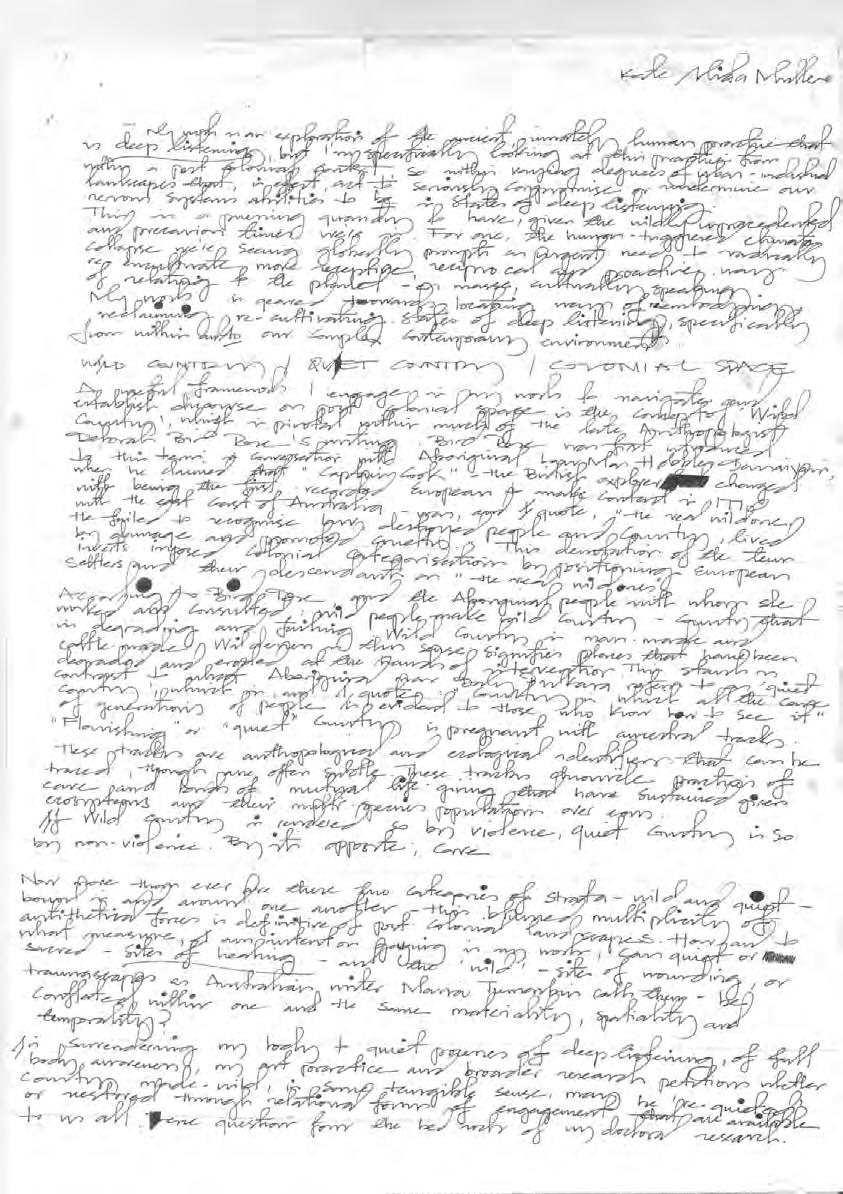 Kate
My is an exploration of the ancient innately human practice that
is deep listening, but I'm specifically looking at this practice from
within a post colonial so within varying degrees of urban-industrial
landscapes that, in effect, act to seriously compromise or undermine our
nervous systems abilities to be in states of deep listening.
This is a quandry to have, given the wildly unprecedented
and precarious times we're in. For one, the human-triggered climate
collapse we're seeing globally prompts an urgent need to radically
more receptive, reciprocal and proactive ways
of relating to the planet - en masse, culturally speaking
My work is geared towards locating ways of embodying,
reclaiming, re-cultivating states of deep listening, specifically
from within and to our complex contemporary environments
WILD COUNTRY / QUIET COUNTRY / COLONIAL SPACE
A useful framework I engage in my work to navigate and
establish discourse on post colonial space is the concept of 'Wild
Country', which is pivotal within much of the late Anthropologist
Deborah Bird Rose's writing. Bird Rose was first introduced
to this term in conversation with Aboriginal Law Man Hobbles Danaiyarri,
when he claimed that "Captain Cook" - the British explorer charged
with being the first recorded European to make contact in 1770
with the east coast of Australia was, and I quote, "the real wild one,
He failed to recognise law, destroyed people and Country, lived
by damage and promoted cruelty." This of the term
inverts imposed colonial categorisation by positioning European
settlers and their descendants as "the real wild ones"
According to Bird Rose and the Aboriginal people with whom she
worked and consulted: wild people make wild Country - Country that
is degrading and failing. Wild Country is man-made and
cattle made. Wilderness in this sense signifies places that have been
degraded and eroded at the hands of intervention. This stands in
contrast to what Aboriginal man Daly Pulkara refers to as "quiet
Country", which is, and I quote, "Country in which all the care
of generations of people is evident to those who know how to see it"
"Flourishing" or "quiet" Country is pregnant with ancestral tracks.
These tracks are anthropological and ecological identifiers that can be
traced, though are often subtle. These tracks chronicle practices of
care and bonds of mutual life giving that have sustained given
ecosystems and their multi-species population over eons.
If Wild Country is rendered so by violence, quiet Country is so
by non-violence. By its opposite, care
Now more than ever are these two categories of strata - wild and quiet -
bound in and around one another - this blurred multiplicity of
antithetical forces is definitive of post colonial landscapes. How and to
what measure, is in my work, can quiet or
sacred - sites of healing - and the 'wild' - sites of wounding, or
traumascapes as Australian writer Maria Tumarkin calls them - be
conflated within one and the same materiality, spatiality and
temporality?
In surrendering my body to quiet of deep listening, of full
body awareness, my art practice and broader research petitions whether
Country made-wild, in some tangible sense, may be re-quieted
or restored through relational forms of engagement that are available
to us all. question form the bed rock of my doctoral research.